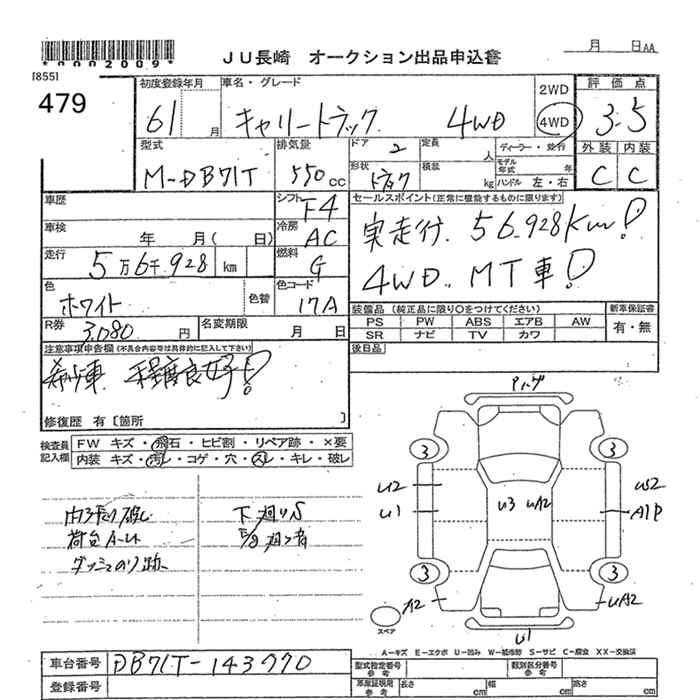 *0002009*
[855]
JU長崎 オークション出品申込書
月 日AA
479
初度登録年月 車名・グレード
61 月 キャリートラック 4WD
2WD
4WD
評価点
3.5
型式 排気量 ドア 定員 ディーラー・並行
M-DB71T 550cc 2 人
形状 積載 モデル年式 年
トラック kg ハンドル 左・右
外装 内装
C C
車歴 シフト F4
セールスポイント(正常に機能するものに限ります)
車検 年 月( 日) 冷房 AC
実走行. 56.928Km!
走行 5万6千.928 km 燃料 G
4WD.. MT車!
色 ホワイト 色替 色コード 17A
装備品(純正品に限り○をつけてください) 新車保証書
PS PW ABS エアB AW 有・無
SR ナビ TV カワ
R券 円 名変期限 月 日
後日品
注意事項申告欄(不具合内容等は具体的に記入して下さい)
希少車 程度良好!
修復歴 有〔箇所 〕
検査員記入欄
FW キズ・飛石・ヒビ割・リペア跡・×要
内装 キズ・汚レ・コゲ・穴・スレ・キレ・破レ
荷台 A-U
下廻りS
3 3
U2 W2
U1 A1P
U3 UA2
3 3
A2 UA2
スペア
U1
A-キズ E-エクボ U-凹み W-補修跡 S-サビ C-腐食 XX-交換済
車台番号 DB71T-143770
登録番号
型式指定番号 参考 類別区分番号 参考
車庫証明用 参考 長さ cm 幅 cm 高さ cm